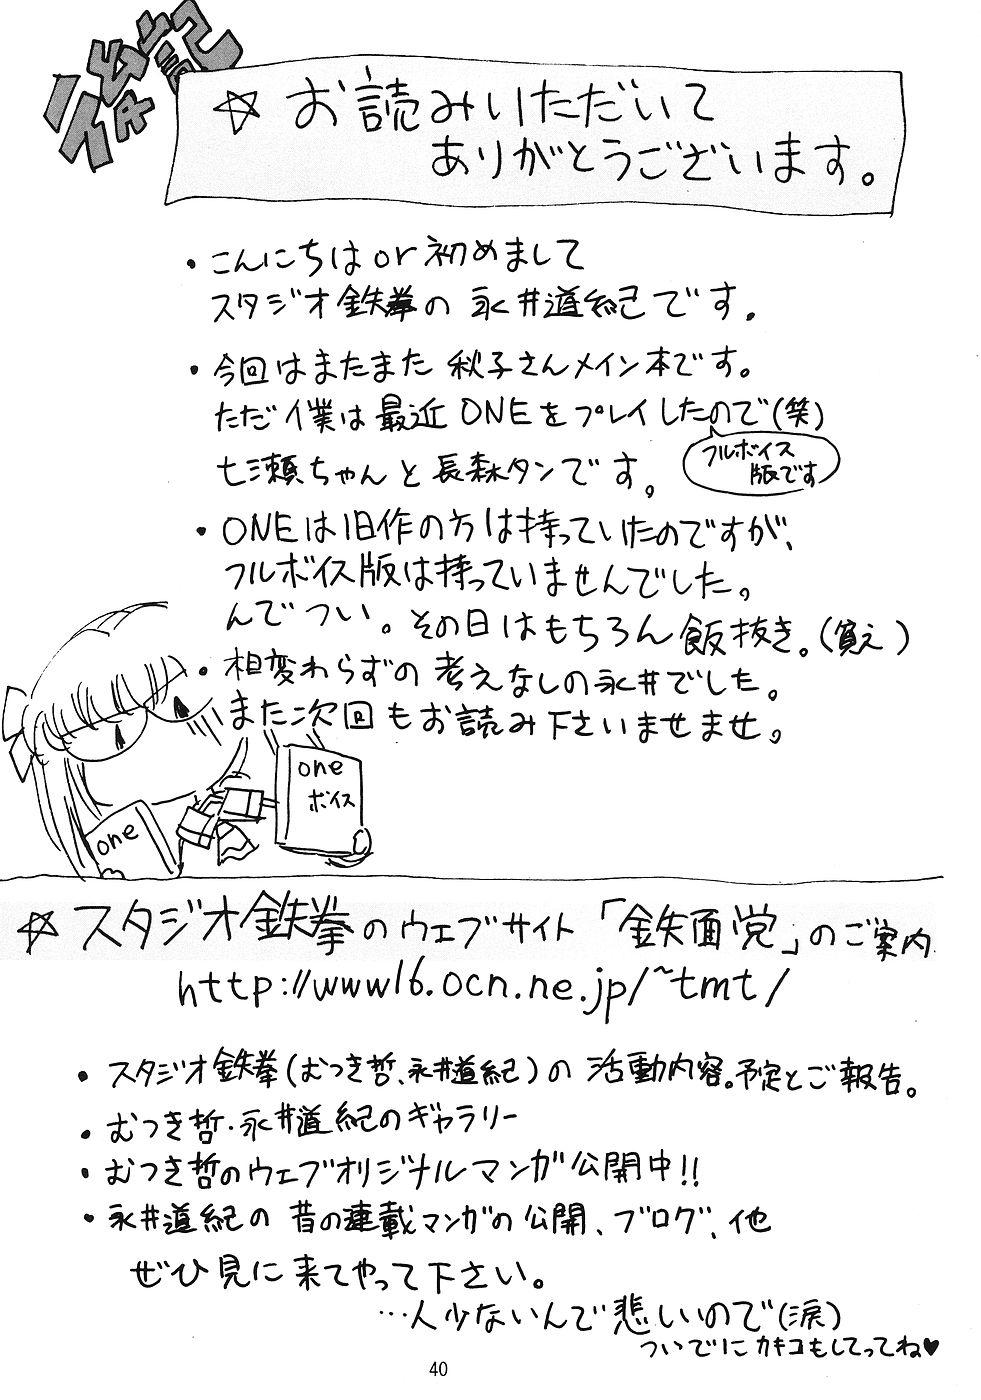 後記
☆ お読みいただいて
ありがとうございます。
・こんにちは or 初めまして
スタジオ鉄拳の 永井道紀です.
・今回はまたまた 秋子さんメイン本です。
ただ僕は最近ONEをプレイしたので(笑)
フルボイス
版です
七瀬ちゃんと長森タンです。
・ONEは旧作の方は持っていたのですが、
フルボイス版は持っていませんでした。
んでつい。その日はもちろん飯抜き。(貧え)
・相変わらずの考えなしの永井でした。
また次回もお読み下さいませませ。
one
ボイス
one
☆ スタジオ鉄拳のウェブサイト「鉄面党」のご案内
http://www16.ocn.ne.jp/~tmt/
・スタジオ鉄拳(むつき哲、永井道紀)の活動内容。予定とご報告。
・むつき哲・永井道紀のギャラリー
・むつき哲のウェブオリジナルマンガ公開中!!
・永井道紀の 昔の連載マンガの公開、ブログ、他
ぜひ見に来てやって下さい。
…人少ないんで悲しいので(涙)
ついでにカキコもしてってね♥
40